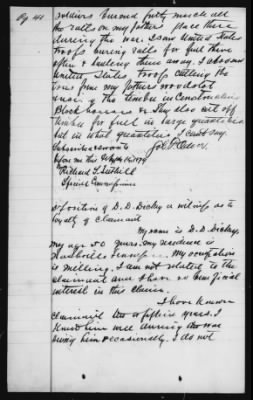 Pg 41
soldiers burned pretty much all
the rails on my father's place there
during the war. I saw United States
Troops burning rails for fuel there
often & hauling them away. I also saw
United States Troops cutting the
trees from my fathers woodlot
using of the timber in Constructing
Block houses & They also cut off
timber for fuel in large quantities
but in what quantities I cant say.
Subscribed & sworn to
before me this
Richard
Special Commissioner
Deposition of D. D. Dickey a witness as to
loyalty of claimant
My name is D. D. Dickey,
my age 50 years. my residence is
Nashville My occupation
is milling. I am not related to the
claimant and have no beneficial
interest in this claim.
I have known
claimant fifteen years. I
knew him well during the war
seeing him occasionally. I do not